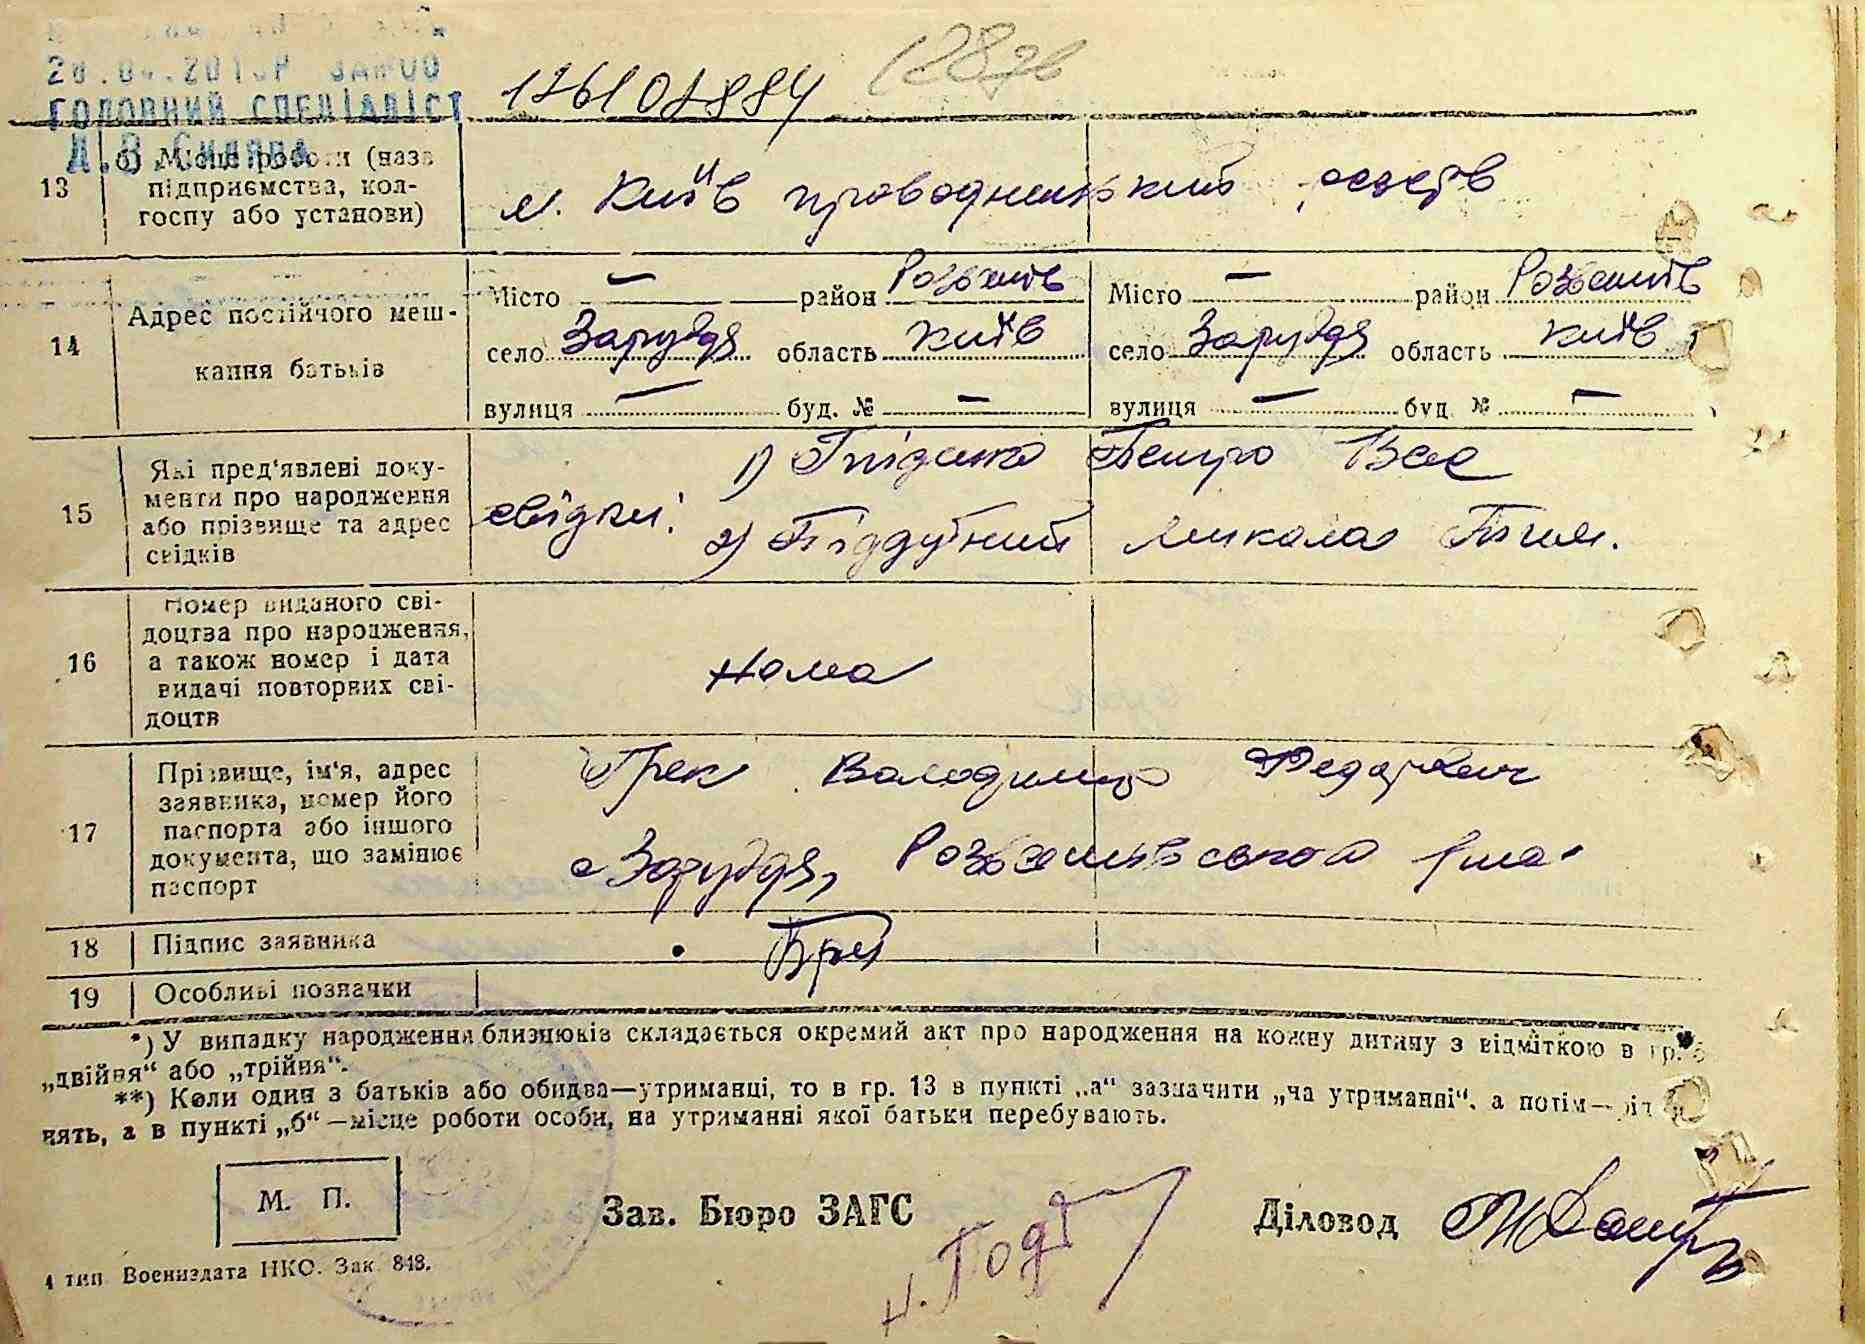 ГОЛОВНИЙ СПЕЦІАЛІСТ
13 б) Місце роботи (назва підприємства, колгоспу або установи) м. Київ проводницький резерв
14 Адрес постійного мешкання батьків
Місто — район Розважів Місто — район Розважів
село Заруддя область Київ село Заруддя область Київ
вулиця — буд. № — вулиця — буд. № —
15 Які пред'явлені документи про народження або прізвище та адрес свідків
свідки: 1) Петро Вас
2) Піддубний Микола
16 Номер виданого свідоцтва про народження, а також номер і дата видачі повторних свідоцтв
нема
17 Прізвище, ім'я, адрес заявника, номер його паспорта або іншого документа, що замінює паспорт
Грек Володимир Федорович
с Заруддя, Розважівського
18 Підпис заявника
19 Особливі позначки
*) У випадку народження близнюків складається окремий акт про народження на кожну дитину з відміткою в гр.
„двійня“ або „трійня“.
**) Коли один з батьків або обидва—утриманці, то в гр. 13 в пункті „а“ зазначити „на утриманні“, а потім—
нять, а в пункті „б“—місце роботи особи, на утриманні якої батьки перебувають.
М. П.
Зав. Бюро ЗАГС
Діловод
4 тип Воениздата НКО. Зак. 848.